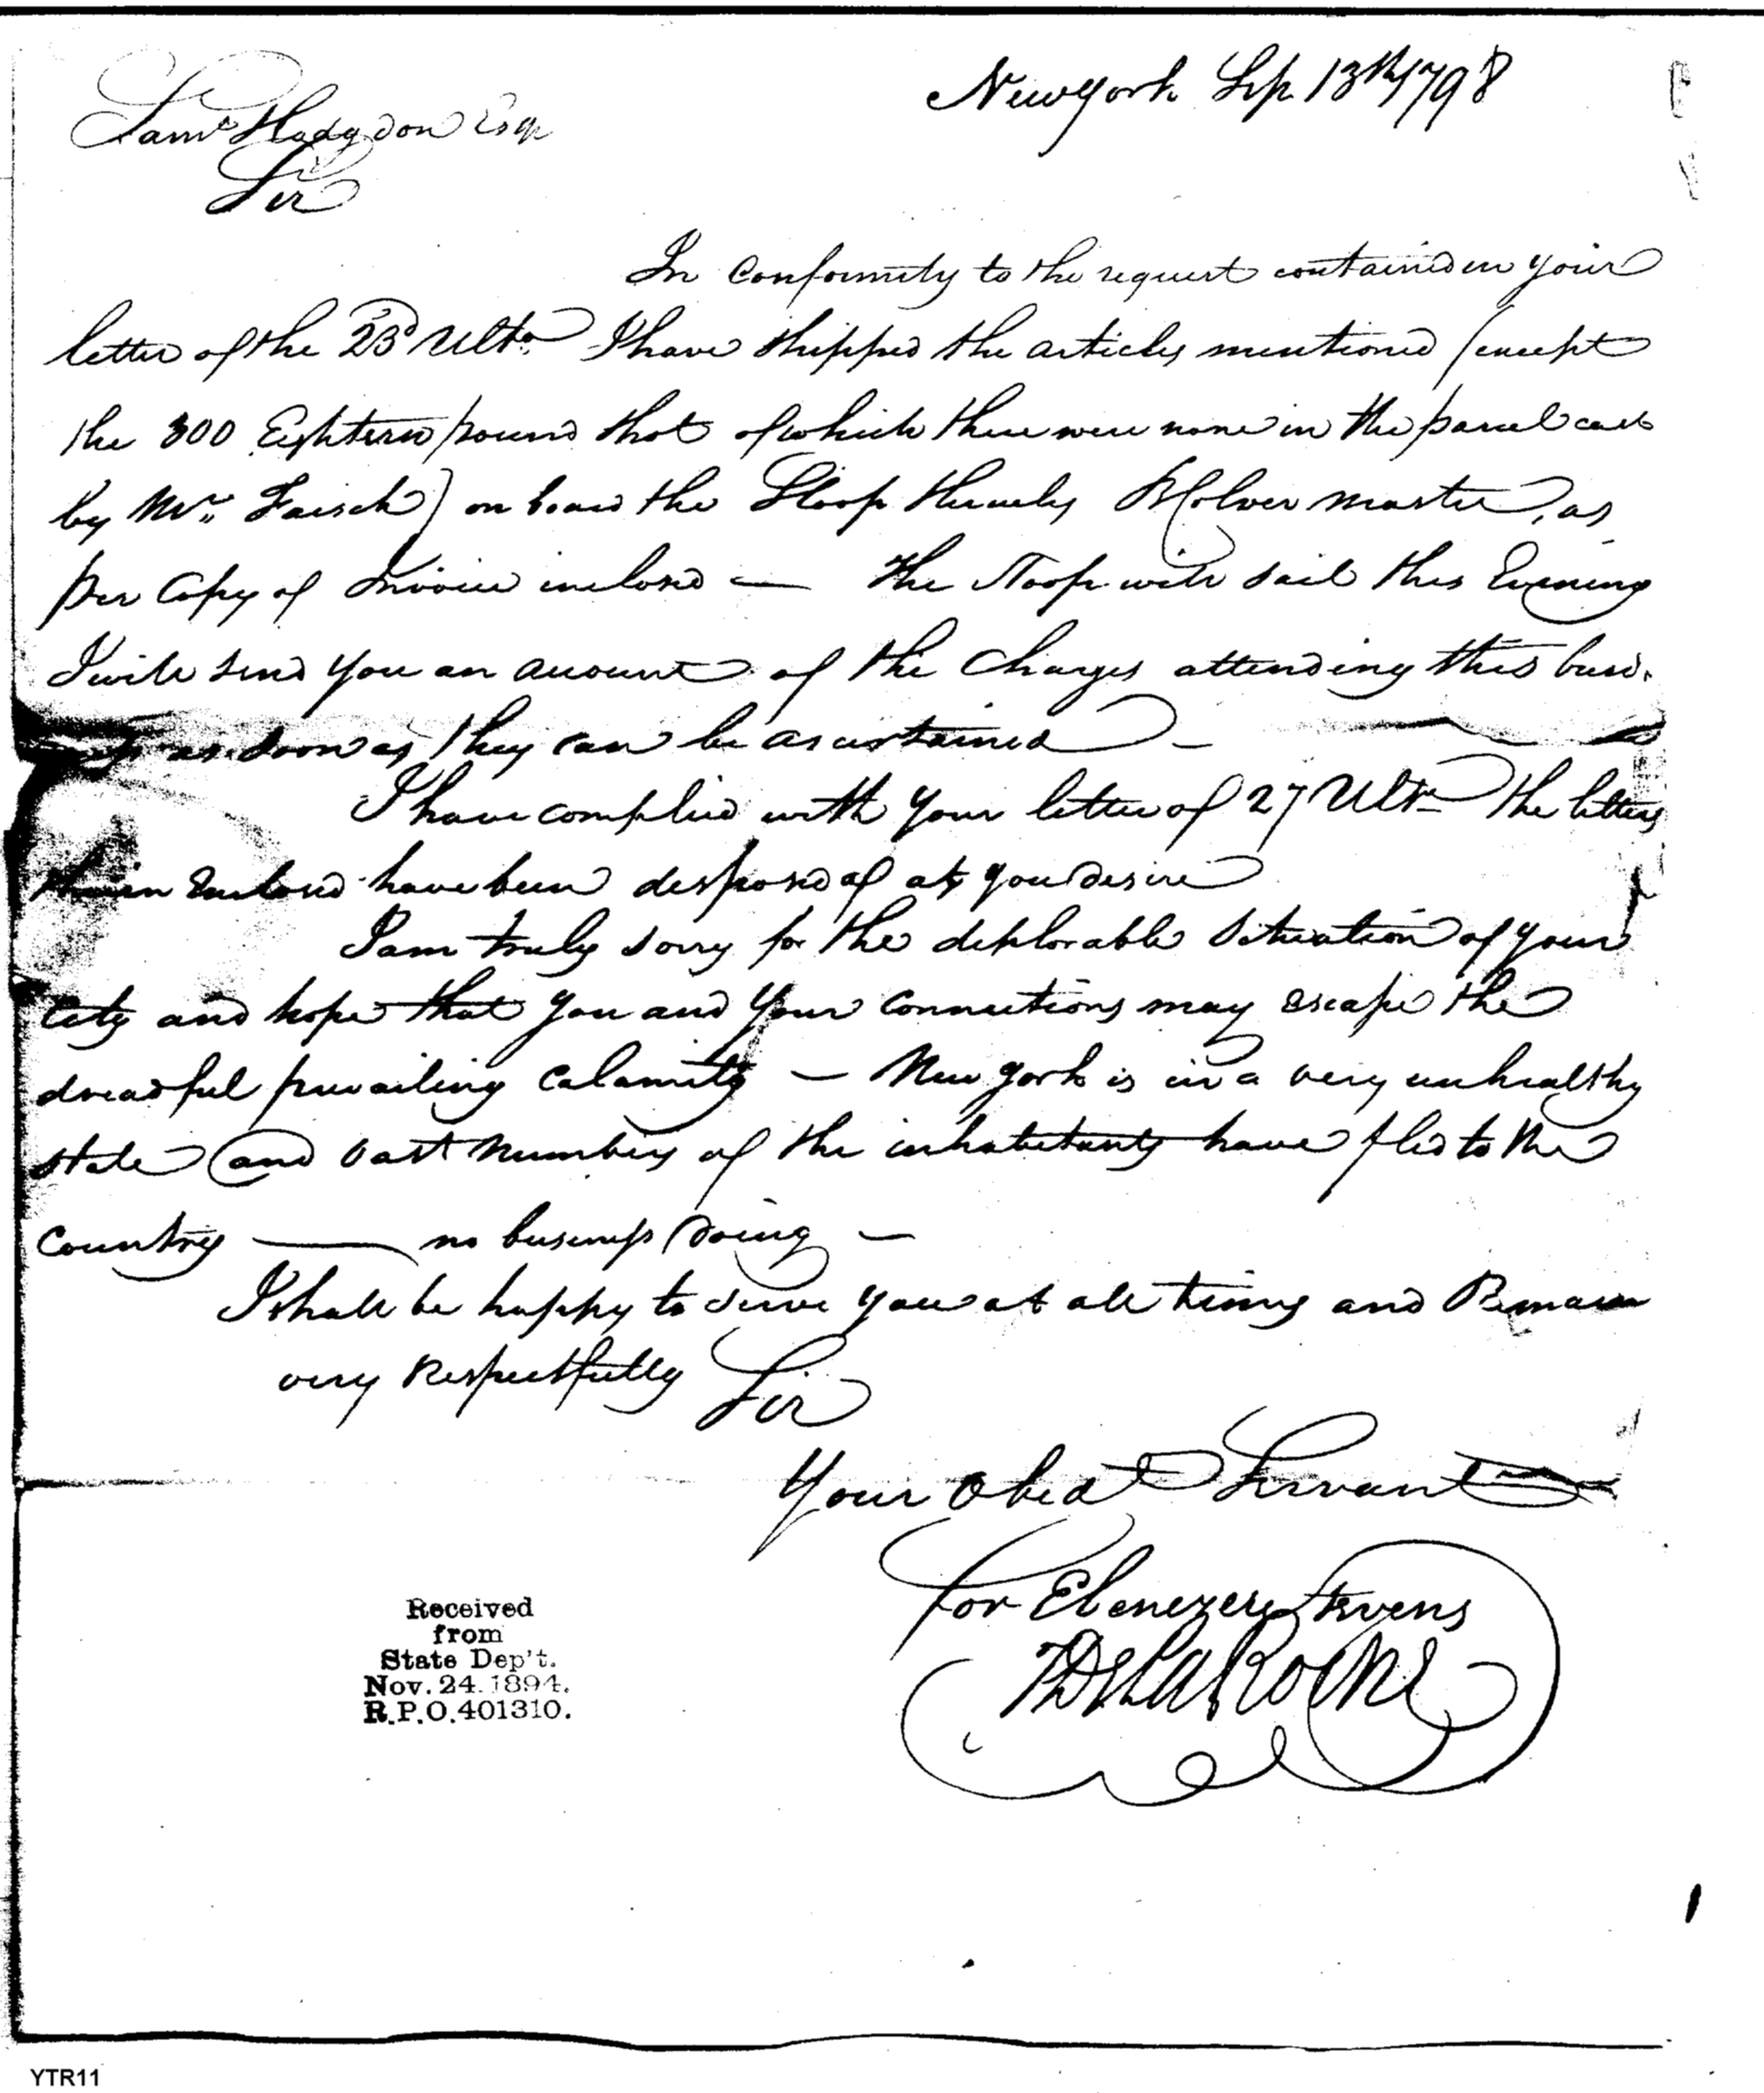 New York Sep 13th 1798
Saml Hodgdon Esqr
Sir
In Conformity to the request contained in your
letter of the 23d Ulto. I have shipped the articles mentioned (except
the 300 Eighteen pound shot of which there were none in the parcel cast
by Mr. Faesch) on board the Sloop master, as
per Copy of Invoice inclosd — The Sloop will sail this Evening
I will send you an account of the Charges attending this busi-
as soon as they can be ascertained —
I have complied with your letter of 27 Ulto. The letters
therein Enclosed have been disposed of as you desire
I am truly sorry for the deplorable Situation of your
City and hope that you and your Connections may escape the
dreadful prevailing Calamity — New York is in a very unhealthy
state and vast Numbers of the inhabitants have fled to the
Country — no business doing —
I shall be happy to serve you at all times and Remain
very Respectfully Sir
Your Obedt Servant
for Ebenezer Stevens
T De La Roche
Received
from
State Dep't.
Nov. 24. 1894.
R.P.O. 401310.
YTR11